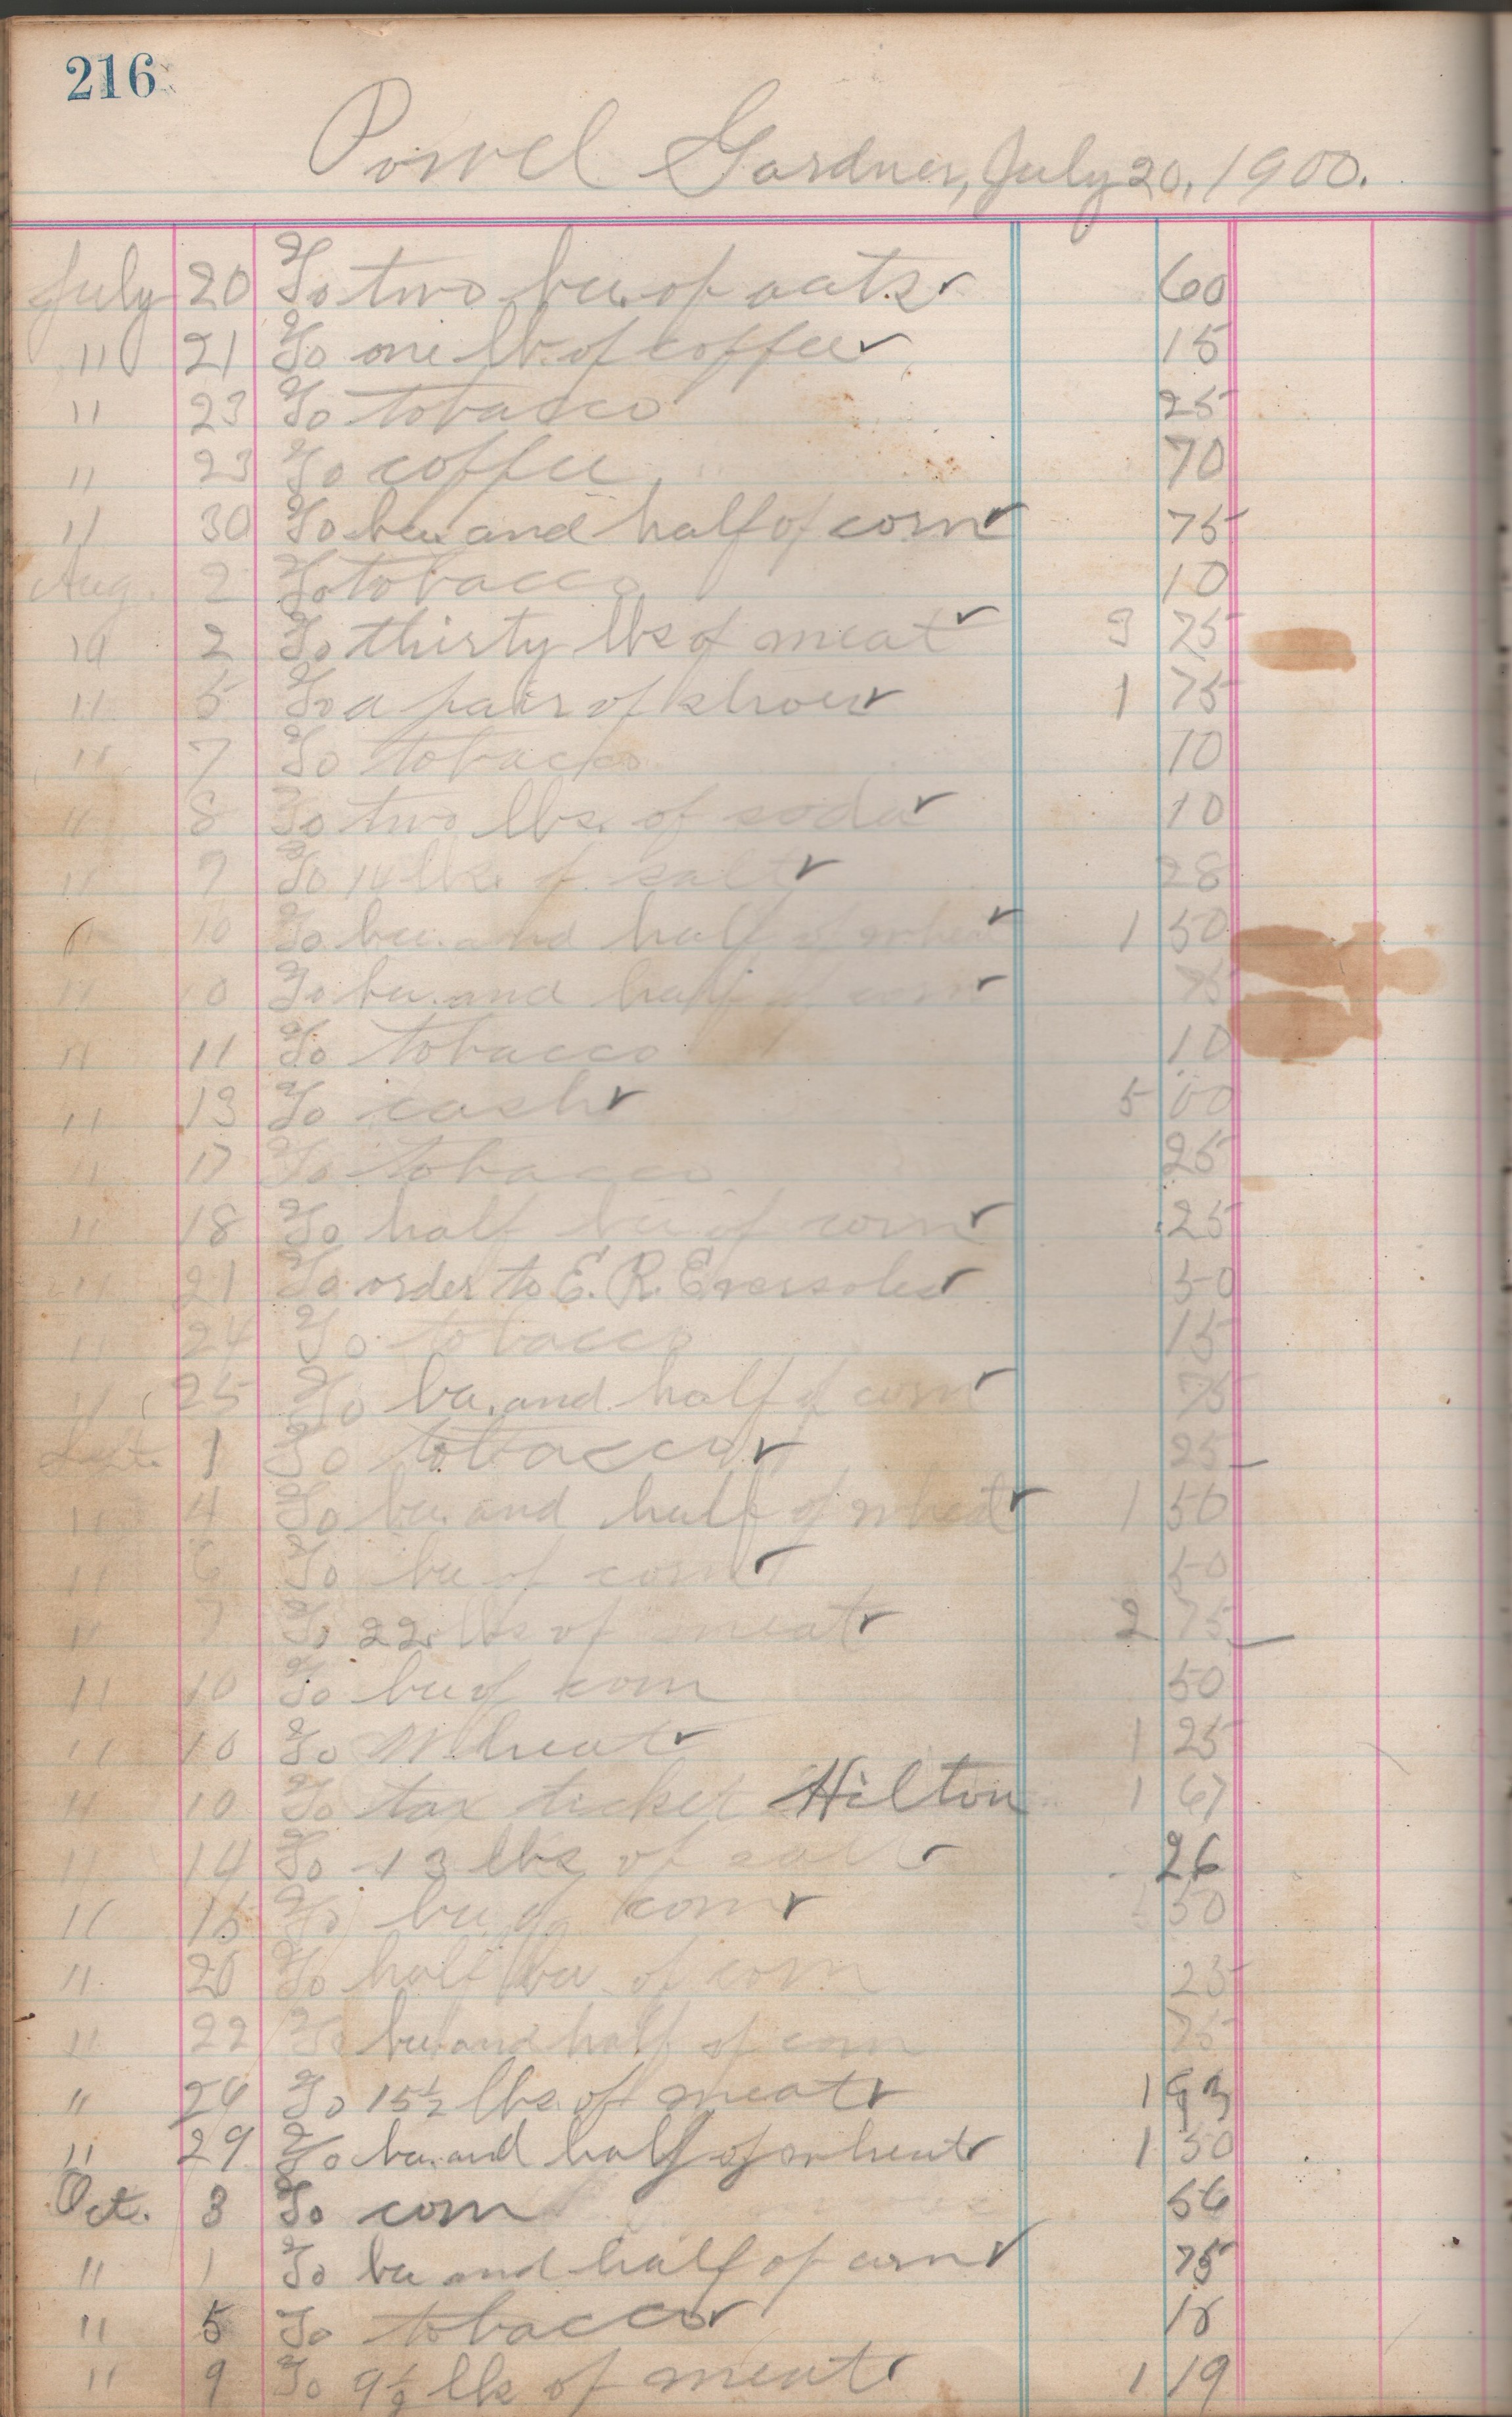 216
Powel Gardner, July 20, 1900.
July 20 To two bu. of oats ✓ 60
" 21 To one lb. of coffee ✓ 15
" 23 To tobacco 25
" 23 To coffee 70
" 30 To bu. and half of corn ✓ 75
Aug. 2 To tobacco 10
" 2 To thirty lbs of meat ✓ 3 75
" 5 To a pair of shoes ✓ 1 75
" 7 To tobacco 10
" 8 To two lbs. of soda ✓ 10
" 9 To 14 lbs. of salt ✓ 28
" 10 To bu. and half of wheat ✓ 1 50
" 10 To bu. and half of corn ✓ 75
" 11 To tobacco 10
" 13 To cash ✓ 5 00
" 17 To tobacco 25
" 18 To half bu of corn ✓ 25
" 21 To order to E. R. Eversole ✓ 50
" 24 To tobacco 15
" 25 To bu. and half of corn ✓ 75
Sept. 1 To tobacco ✓ 25
" 4 To bu. and half of wheat ✓ 1 50
" 6 To bu of corn ✓ 50
" 7 To 22 lbs of meat ✓ 2 75
" 10 To bu of corn 50
" 10 To Wheat ✓ 1 25
" 10 To tax ticket Hilton 1 67
" 14 To 13 lbs of salt ✓ 26
" 15 To bu. of corn ✓ 50
" 20 To half bu. of corn 25
" 22 To bu and half of corn 75
" 24 To 15½ lbs. of meat ✓ 1 93
" 29 To bu. and half of wheat ✓ 1 50
Oct. 3 To corn 56
" 1 To bu and half of corn ✓ 75
" 5 To tobacco ✓
" 9 To 9½ lbs of meat ✓ 1 19